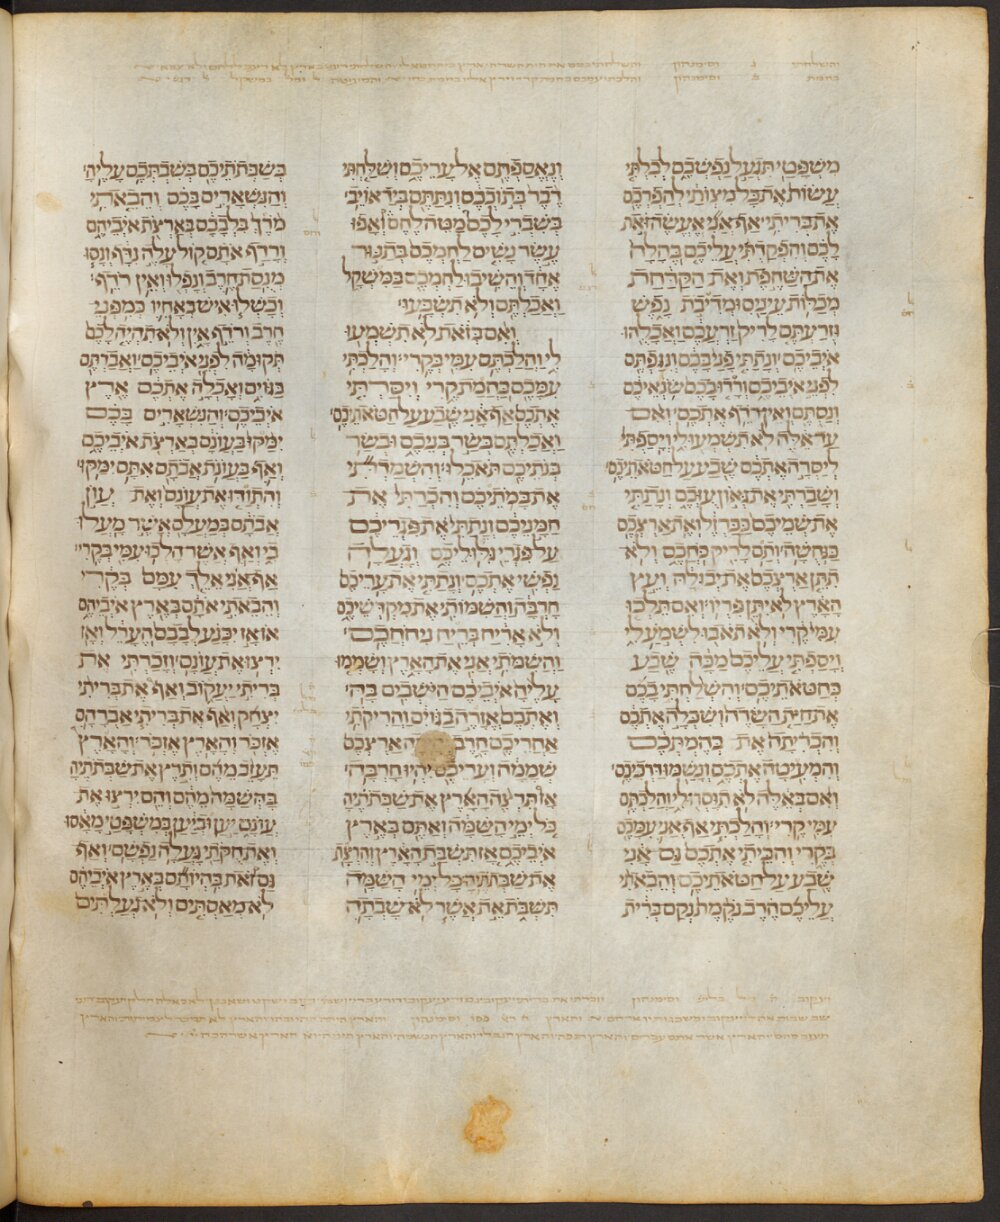 משפטי תגעל נפשכם לבלתי
עשות את כל מצותי להפרכם
את בריתי אף אני אעשה זאת
לכם והפקדתי עליכם בהלה
את השחפת ואת הקדחת
מכלות עינים ומדיבת נפש
וזרעתם לריק זרעכם ואכלהו
איביכם ונתתי פני בכם ונגפתם
לפני איביכם ורדו בכם שנאיכם
ונסתם ואין רדף אתכם ואם
עד אלה לא תשמעו לי ויספתי
ליסרה אתכם שבע על חטאתיכם
ושברתי את גאון עזכם ונתתי
את שמיכם כברזל ואת ארצכם
כנחשה ותם לריק כחכם ולא
תתן ארצכם את יבולה ועץ
הארץ לא יתן פריו ואם תלכו
עמי קרי ולא תאבו לשמע לי
ויספתי עליכם מכה שבע
כחטאתיכם והשלחתי בכם
את חית השדה ושכלה אתכם
והכריתה את בהמתכם
והמעיטה אתכם ונשמו דרכיכם
ואם באלה לא תוסרו לי והלכתם
עמי קרי והלכתי אף אני עמכם
בקרי והכיתי אתכם גם אני
שבע על חטאתיכם והבאתי
עליכם חרב נקמת נקם ברית
ונאספתם אל עריכם ושלחתי
דבר בתוככם ונתתם ביד אויב
בשברי לכם מטה לחם ואפו
עשר נשים לחמכם בתנור
אחד והשיבו לחמכם במשקל
ואכלתם ולא תשבעו
ואם בזאת לא תשמעו
לי והלכתם עמי בקרי והלכתי
עמכם בחמת קרי ויסרתי
אתכם אף אני שבע על חטאתיכם
ואכלתם בשר בניכם ובשר
בנתיכם תאכלו והשמדתי
את במתיכם והכרתי את
חמניכם ונתתי את פגריכם
על פגרי גלוליכם וגעלה
נפשי אתכם ונתתי את עריכם
חרבה והשמותי את מקדשיכם
ולא אריח בריח ניחחכם
והשמתי אני את הארץ ושממו
עליה איביכם הישבים בה
ואתכם אזרה בגוים והריקתי
אחריכם חרב והיתה ארצכם
שממה ועריכם יהיו חרבה
אז תרצה הארץ את שבתתיה
כל ימי השמה ואתם בארץ
איביכם אז תשבת הארץ והרצת
את שבתתיה כל ימי השמה
תשבת את אשר לא שבתה
בשבתתיכם בשבתכם עליה
והנשארים בכם והבאתי
מרך בלבבם בארצת איביהם
ורדף אתם קול עלה נדף ונסו
מנסת חרב ונפלו ואין רדף
וכשלו איש באחיו כמפני
חרב ורדף אין ולא תהיה לכם
תקומה לפני איביכם ואבדתם
בגוים ואכלה אתכם ארץ
איביכם והנשארים בכם
ימקו בעונם בארצת איביכם
ואף בעונת אבתם אתם ימקו
והתודו את עונם ואת עון
אבתם במעלם אשר מעלו
בי ואף אשר הלכו עמי בקרי
אף אני אלך עמם בקרי
והבאתי אתם בארץ איביהם
או אז יכנע לבבם הערל ואז
ירצו את עונם וזכרתי את
בריתי יעקוב ואף את בריתי
יצחק ואף את בריתי אברהם
אזכר והארץ אזכר והארץ
תעזב מהם ותרץ את שבתתיה
בהשמה מהם והם ירצו את
עונם יען וביען במשפטי מאסו
ואת חקתי געלה נפשם ואף
גם זאת בהיותם בארץ איביהם
לא מאסתים ולא געלתים